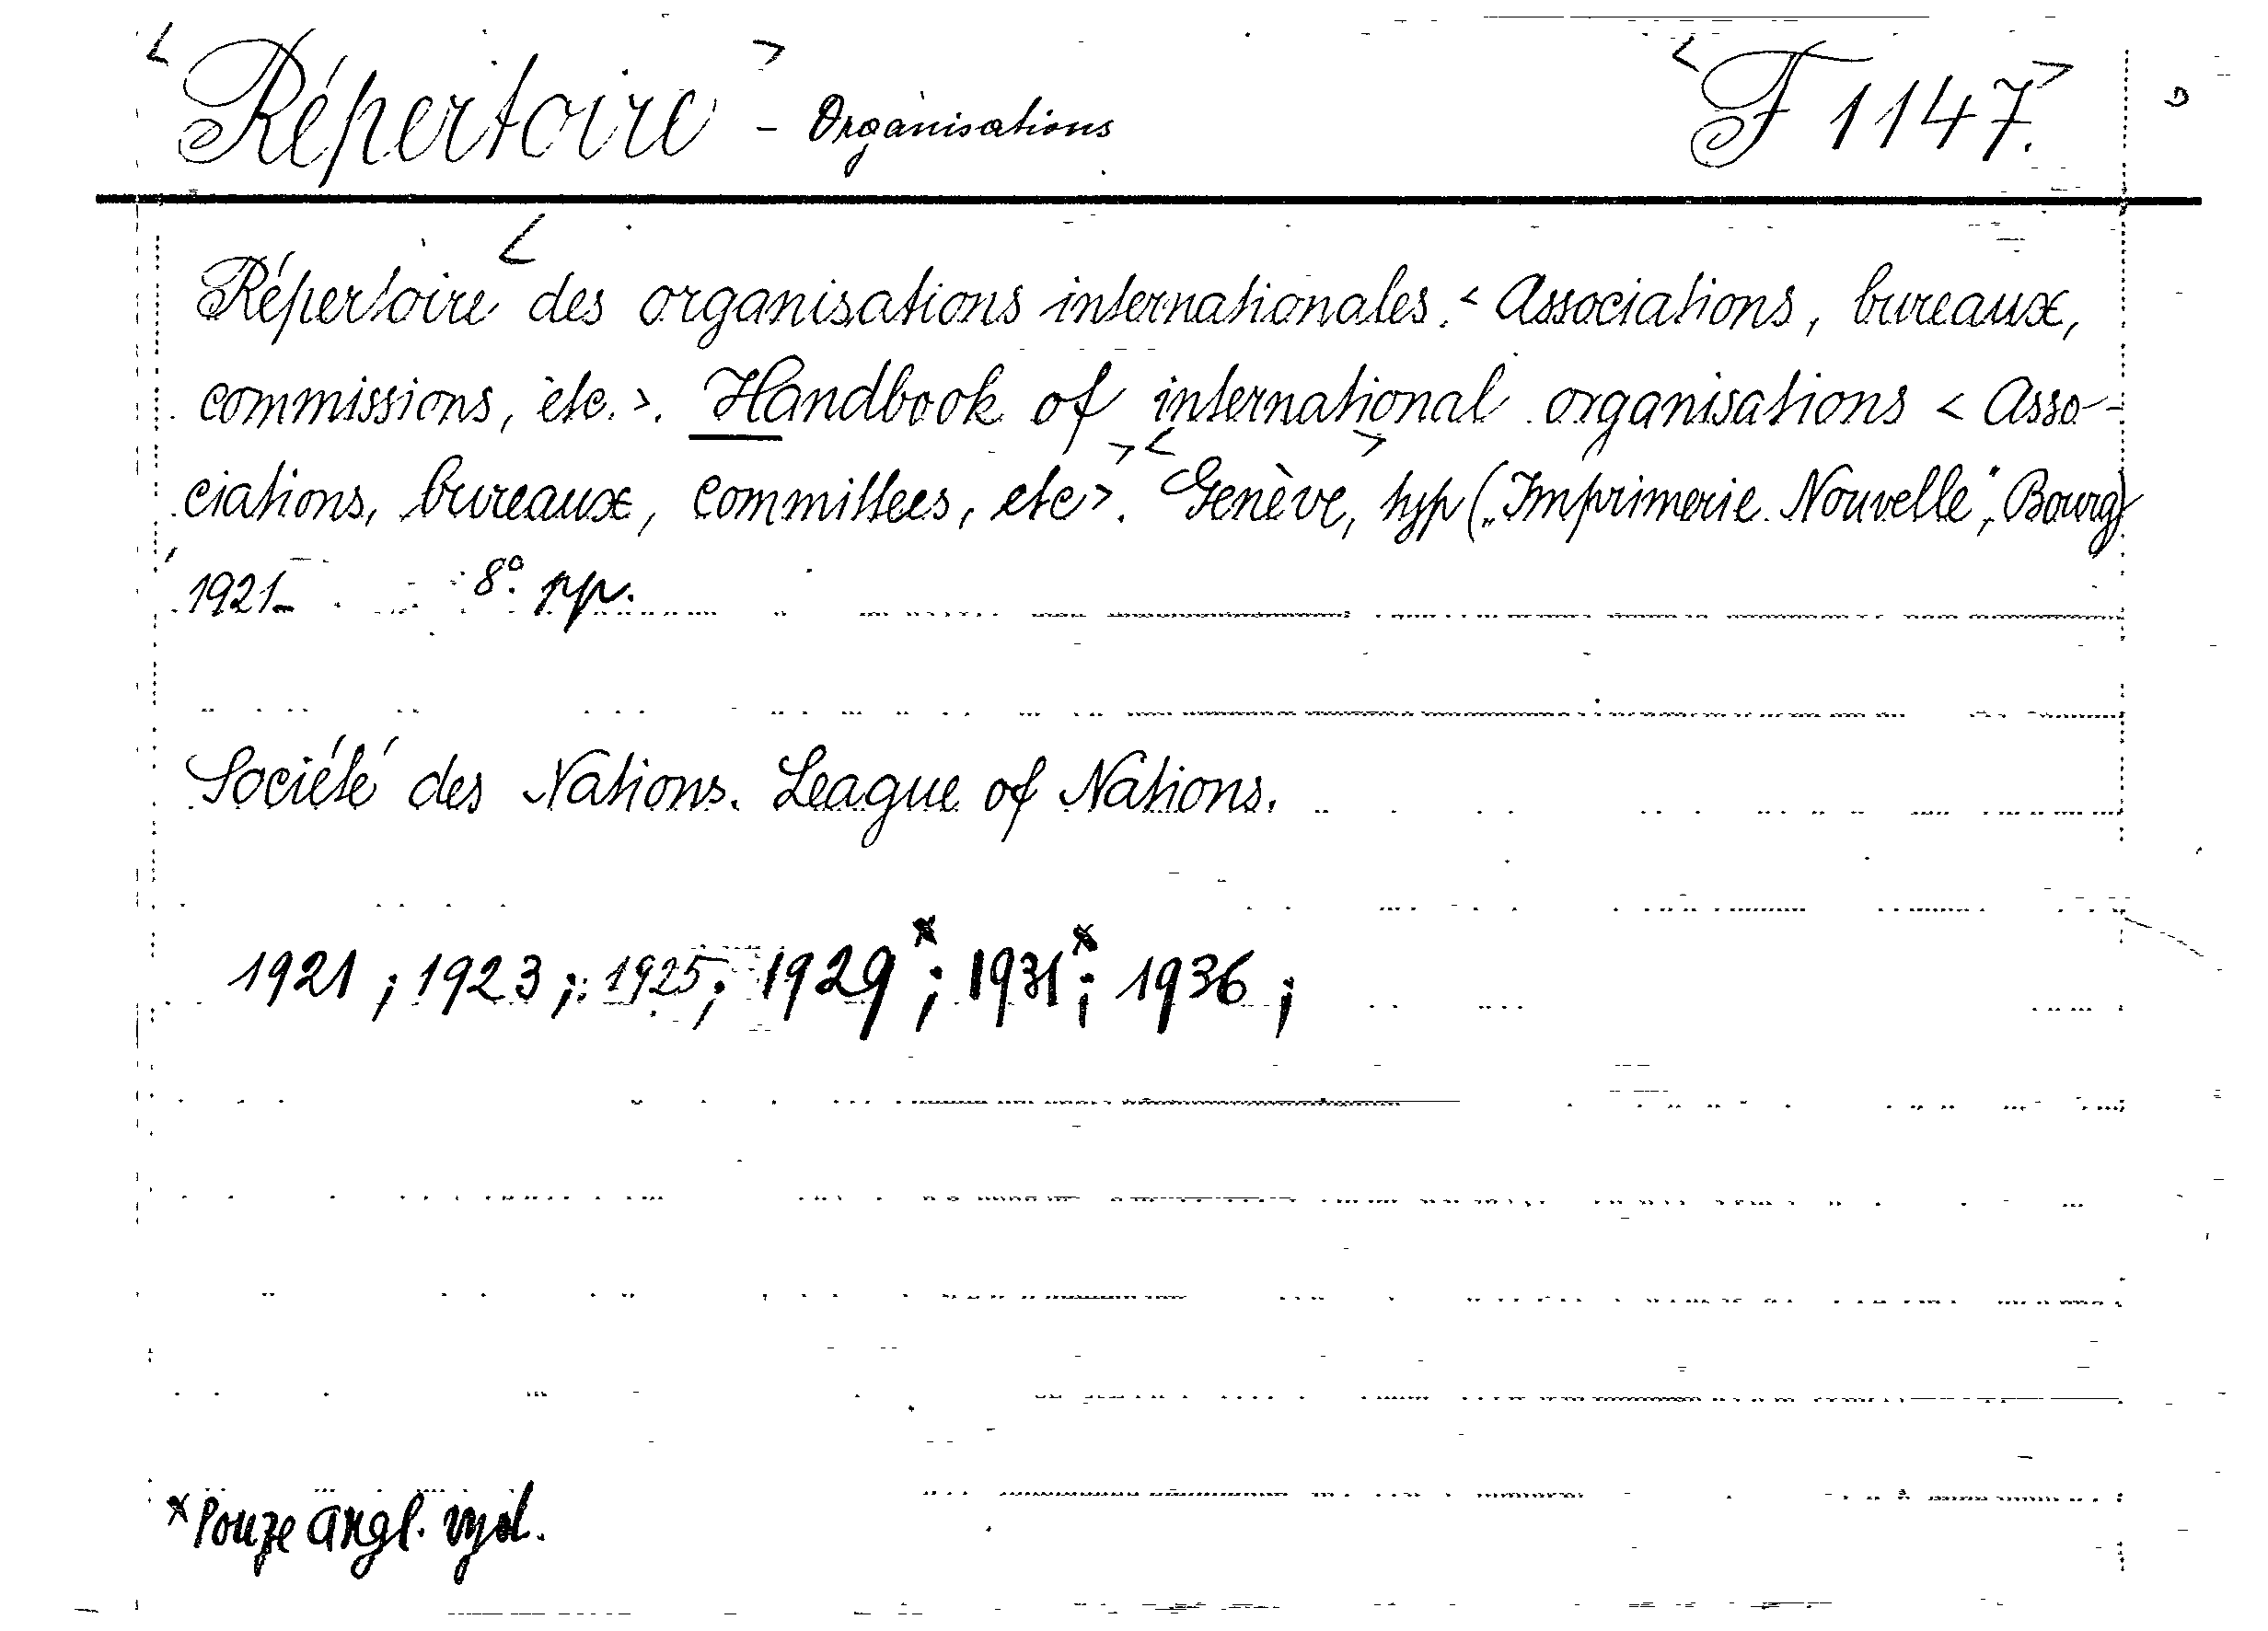 < Répertoire > - Organisations < F 1147. >
Répertoire < des organisations internationales. < Associations, bureaux,
commissions, etc. >. Handbook of international organisations < Asso-
ciations, bureaux, committees, etc >. > < Genève, > typ („Imprimerie Nouvelle“, Bourg)
1921- 8°. pp.
Société des Nations. League of Nations.
1921 ; 1923 ; 1925 ; 1929 x ; 1931 x ; 1936 ;
x Pouze angl. vyd.